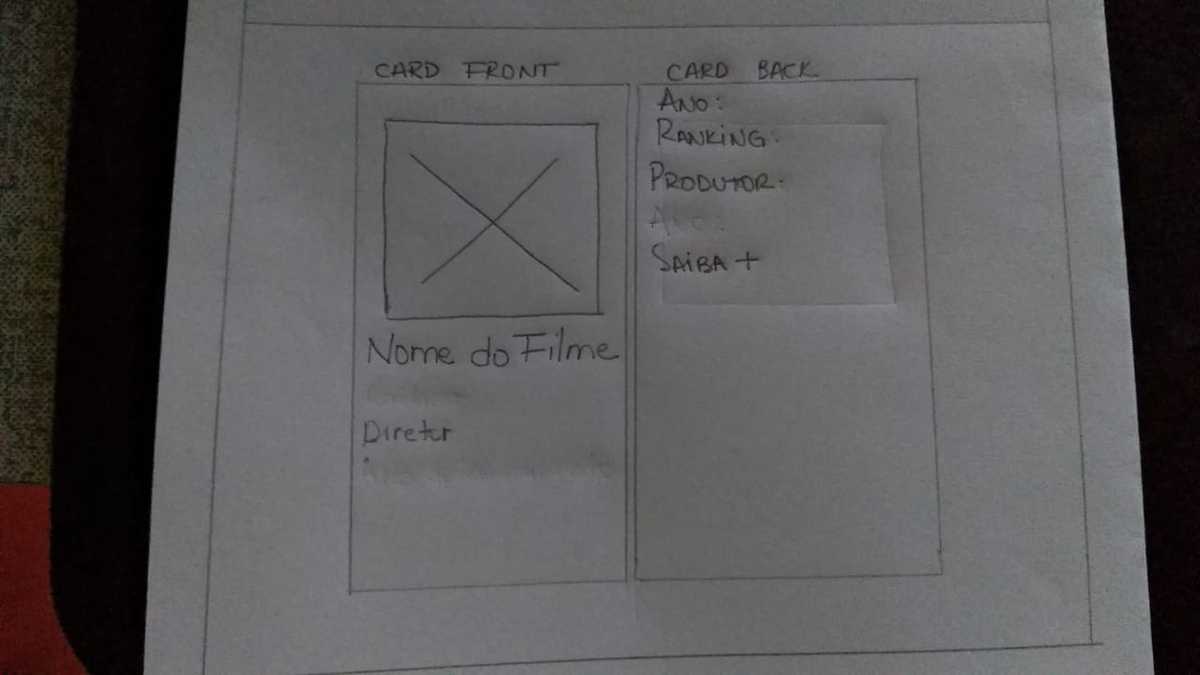 CARD FRONT
Nome do Filme
Diretor
CARD BACK
ANO:
RANKING:
PRODUTOR:
SAIBA +